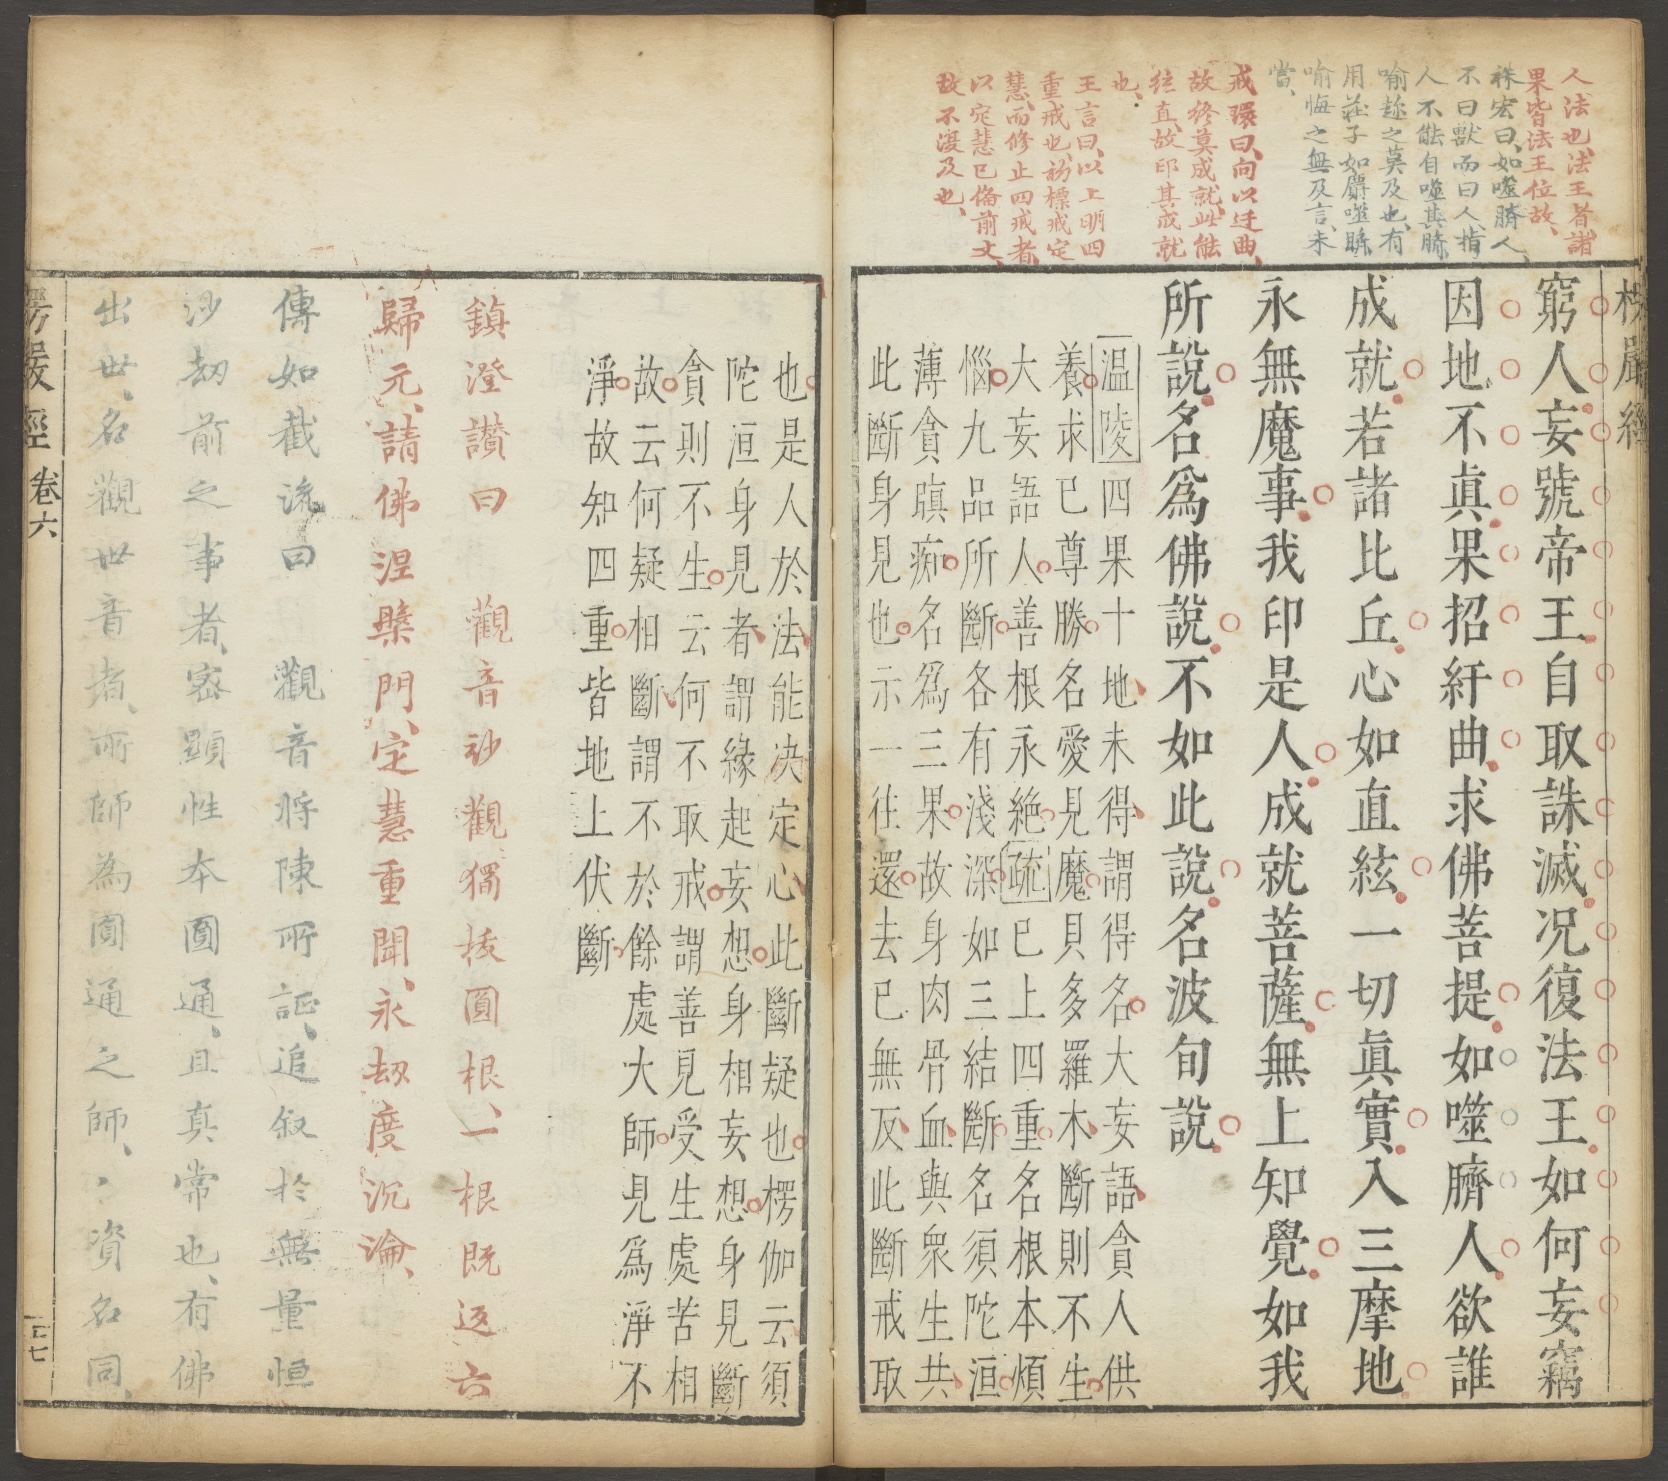 人法也、法王者、諸
果皆法王位故、
袾宏曰、如噬臍人、
不曰獸而曰人、指
人不能自噬其臍、
喻趂之莫及也、有
用莊子如麝噬臍
喻悔之無及言、未
當、
戒環曰、向以迂曲、
故終莫成就、此能
絃直、故印其成就
也、
王言曰、以上明四
重戒也、初標戒定
慧、而修止四戒者、
以定慧已偹前文、
故不復及也、
楞嚴經
窮人妄號帝王自取誅滅况復法王如何妄竊
因地不眞果招紆曲求佛菩提如噬臍人欲誰
成就若諸比丘心如直絃一切眞實入三摩地
永無魔事我印是人成就菩薩無上知覺如我
所說名爲佛說不如此說名波旬說
温陵四果十地未得謂得名大妄語貪人供
養求已尊勝名愛見魔貝多羅木斷則不生
大妄語人善根永絶疏已上四重名根本煩
惱九品所斷各有淺深如三結斷名須陀洹
薄貪瞋痴名爲三果故身肉骨血與衆生共
此斷身見也示一往還去已無反此斷戒取
也是人於法能决定心此斷疑也楞伽云須
陀洹身見者謂緣起妄想身相妄想身見斷
貪則不生云何不取戒謂善見受生處苦相
故云何疑相斷謂不於餘處大師見爲淨不
淨故知四重皆地上伏斷
鎮澄讃曰　觀音妙觀獨拔圓根、一根既返六
歸元、請佛涅槃門、定慧重聞、永劫度沉淪、
傳如截流曰　觀音將陳所証、追叙於無量恒
沙劫前之事者、密顯性本圓通、且真常也、有佛
出世、名觀世音者、所師為圓通之師、〻資名同、
楞嚴經 卷六